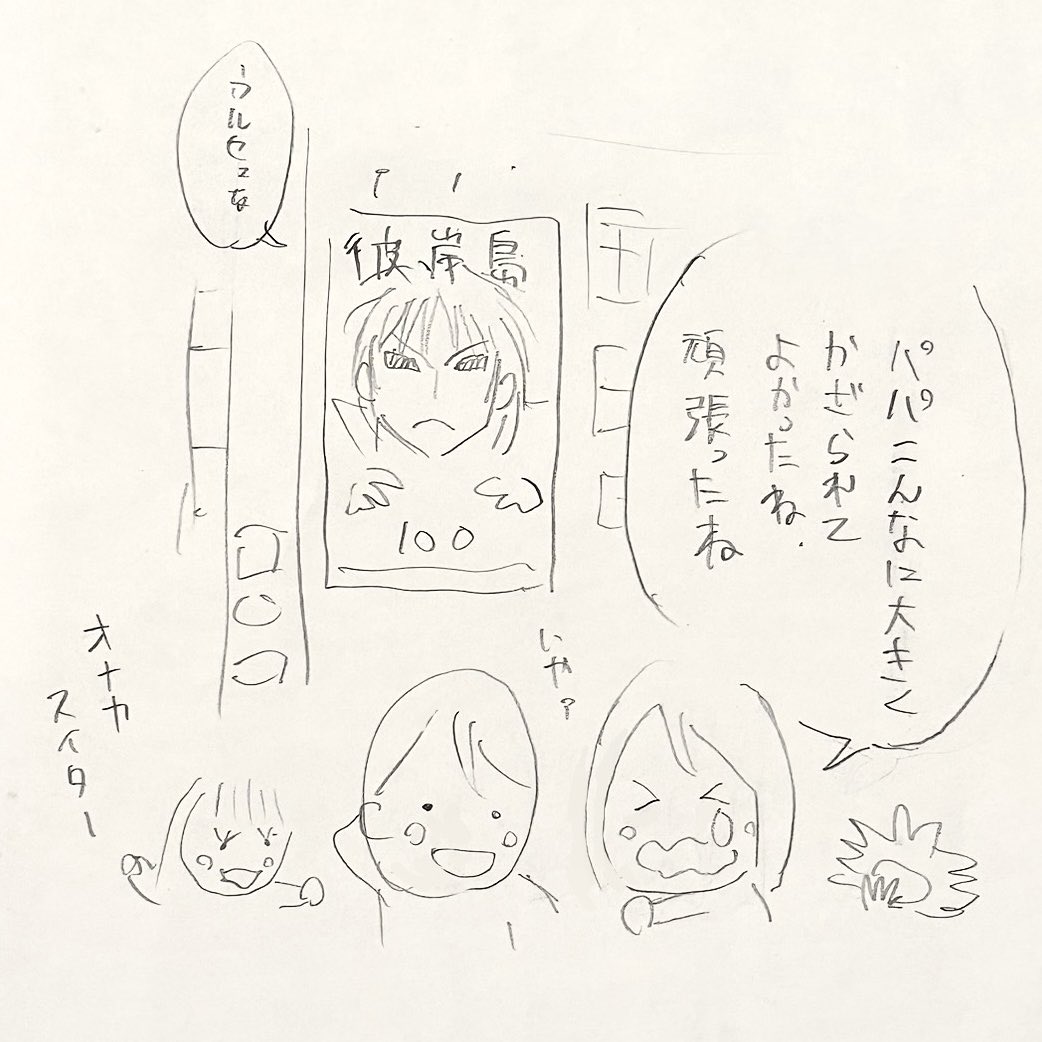 パパこんなに大きく
かざられて
よかったね.
頑張ったね
彼岸島
100
ウルセェな
いや?
オナカ
スイター